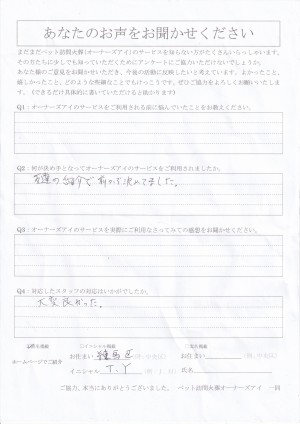 あなたのお声をお聞かせください
まだまだペット訪問火葬(オーナーズアイ)のサービスを知らない方がたくさんいらっしゃいます。
その方たちに少しでも知っていただくためにアンケートにご協力いただけないでしょうか。
あなた様のご意見をお聞かせいただき、今後の活動に反映したいと考えています。よかったこと、
嬉しかったこと、どのような些細なことでもけっこうです。ぜひご協力をよろしくお願いいたします。
(できるだけ具体的に書いていただけると助かります)
Q1：オーナーズアイのサービスをご利用される前に悩んでいたことをお教えください。
Q2：何が決め手となってオーナーズアイのサービスをご利用されましたか。
友達の紹介で前から決めてました。
Q3：オーナーズアイのサービスを実際にご利用なさってみての感想をお聞かせください。
Q4：対応したスタッフの対応はいかがでしたか。
大変良かった。
ホームページでご紹介
□イニシャル掲載
お住まい 練馬区
イニシャル T.Y
お住まい
氏名
ご協力、本当にありがとうございました。 ペット訪問火葬オーナーズアイ 一同